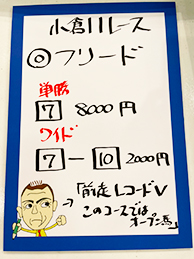 小倉11レース
◎フリード
単勝
7 8000円
ワイド
7-10 2000円
→「前走レコードV
このコースでは
オープン馬」